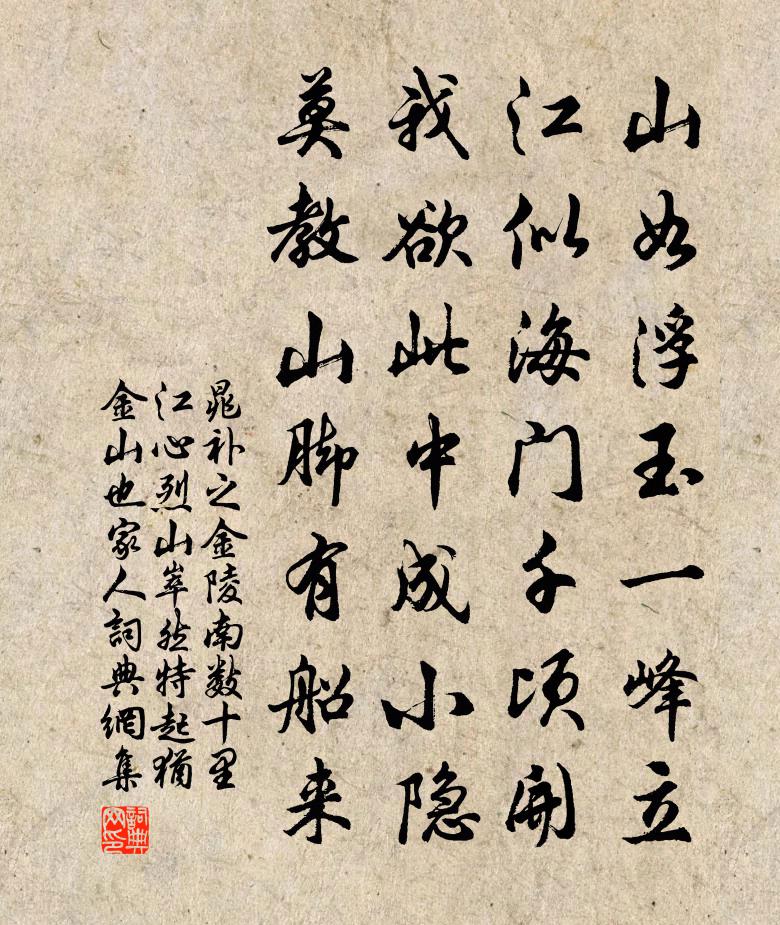 山如浮玉一峰立
江似海门千顷开
我欲此中成小隐
莫教山脚有船来
晁补之金陵南数十里
江心烈山崒然特起犹
金山也家人詞典網集
詞典
网印